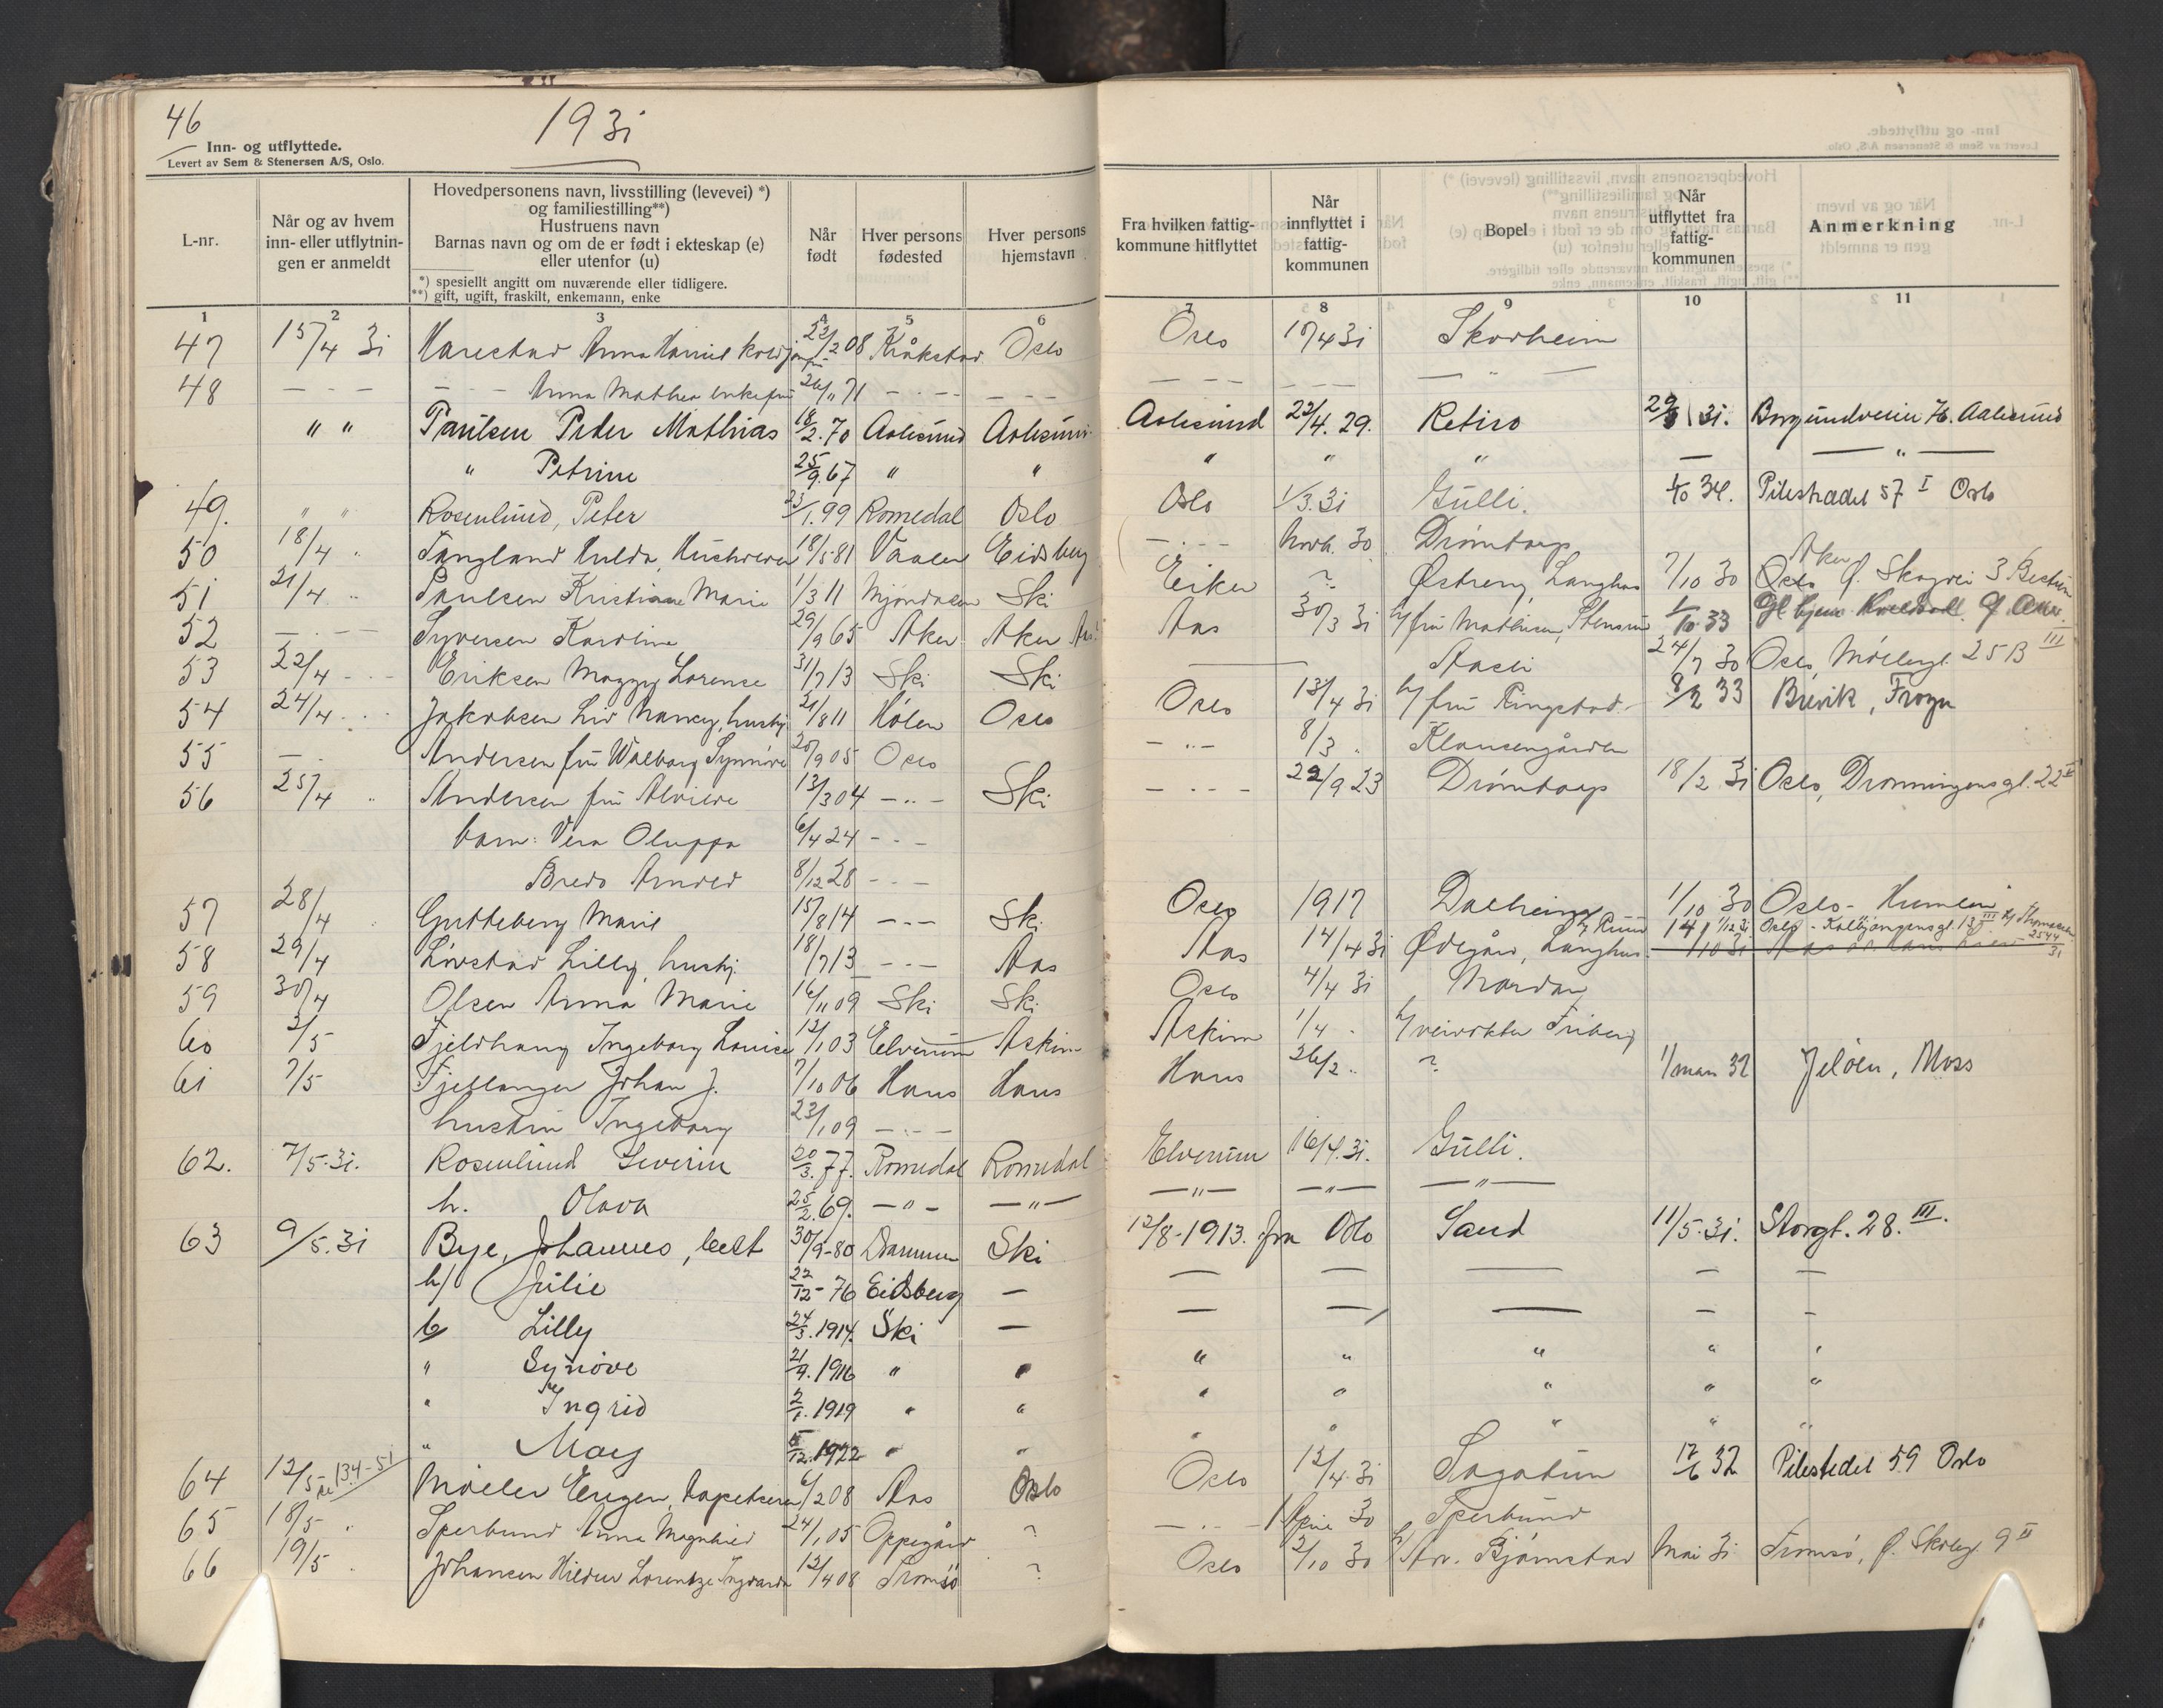 46
1931
Inn- og utflyttede.
Levert av Sem & Stenersen A/S, Oslo.
L-nr. | Når og av hvem inn- eller utflytnin- gen er anmeldt | Hovedpersonens navn, livsstilling (levevei) *) og familiestilling**) Hustruens navn Barnas navn og om de er født i ekteskap (e) eller utenfor (u) *) spesiellt angitt om nuværende eller tidligere. **) gift, ugift, fraskilt, enkemann, enke | Når født | Hver persons fødested | Hver persons hjemstavn | Fra hvilken fattig- kommune hitflyttet | Når innflyttet i fattig- kommunen | Bopel | Når utflyttet fra fattig- kommunen | Anmerkning
1 2 3 4 5 6 7 8 9 10 11
47 15/4 31 Harestad Anna 22/2 08 Kråkstad Oslo Oslo 15/4 31 Skorheim
48 — — — — Anna Mathea enkefru 26/11 71 — — — —
" " Paulsen Peder Mathias 18/2.70 Aalesund Aalesund Aalesund 22/4.29. Retiro 31. 76. Aalesund
" Petrine 25/9.67 " " " " " — — " —
49. " " Rosenlund, Peter 23/1.99 Romedal Oslo Oslo 1/3.31 Gulli. 1/10 34. Pilestredet 57 I Oslo
50 18/4 " Tangland Hulda, 18/5 81 Vaaler Eidsberg — " — Novb. 30 Drømtorp
51 21/4 " Paulsen Kristiane Marie 1/3 11 Mjøndalen Ski Eiker ? Østreng, Langhus 7/10 30 Aker Oslo
52 — Syversen Karoline 29/9 65 Aker Aker Aas 30/3 31 h/ fru Mathisen, Stensrud 1/10 33
53 22/4 — Eriksen Maggy Lorense 31/7 13 Ski Ski — Aasli 24/7 30 Oslo, Møllergt. 25 B III
54 24/4 Jakobsen Liv Nancy, hushj. 21/8 11 Hølen Oslo Oslo 13/4 31 h/ fru Ringstad 8/2 33 Brevik, Frogn
55 — Andersen fru Walborg Synnøve 20/9 05 Oslo — " — 8/3 " Klausengården
56 25/4 " Andersen fru Alvilde 13/3 04 — " — Ski — " — 22/9 23 Drømtorp 18/2 31 Oslo, Dronningensgt. 22 II
barn: Vera 6/4 24 — " —
Bredo Arnold 8/12 28 — " —
57 28/4 Gutteberg Marie 15/8 14 — " — Ski Oslo 1917 Dalheim 1/10 30 Oslo -
58 29/4 Løvstad Lilly, hushj. 18/7 13 — " — Aas Aas 14/4 31 Ødegård, Langhus h/ Ruud 1/12 31 Oslo - 13 III h/ Thomassen
59 30/4 Olsen Anna Marie 16/11 09 Ski Ski Oslo 4/4 31 Nordan
60 2/5 Fjeldhaug Ingeborg Louise 12/1 03 Elverum Askim Askim 1/4 " h/ veivokter Friberg
61 7/5 Fjellanger Johan J. 7/10 06 Haus Haus Haus 26/2 " ? 1/mars 32 Jeløen, Moss
hustru Ingeborg 23/1 09 — " —
62. 7/5.31. Rosenlund Severin 20/3.77. Romedal Romedal Elverum 16/4.31. Gulli.
h. Olava 25/2.69. — " — — " — — " — — " — — " —
63 9/5.31 Bye, Johannes, 30/9-80 Drammen Ski 12/8-1913. fra Oslo Sand 11/5.31. Storgt. 28. III.
h/ Julie 22/12-76 Eidsberg — — — — — —
b/ Lilly 24/3.1914. Ski — — — — — —
" Synøve 21/9.1916 " " " " " " "
" Ingrid 2/1.1919 " " " " " " "
" Mary 5/12.1922 " " " " " " "
64 12/5 134-51 Møller Eugen, tapetserer 6/2 08 Aas Oslo Oslo 12/4 31 Sagatun 12/6 32 Pilestredet 59 Oslo
65 18/5 " Sperbund Anna Magnhild 24/1 05 Oppegård ? — " — 1 April 30 Sperbund
66 19/5 " Johansen Hildur Lorentze 12/4 08 Tromsø ? Oslo 2/10 30 h/ Bjørnstad Mai 31 Tromsø, 9 II